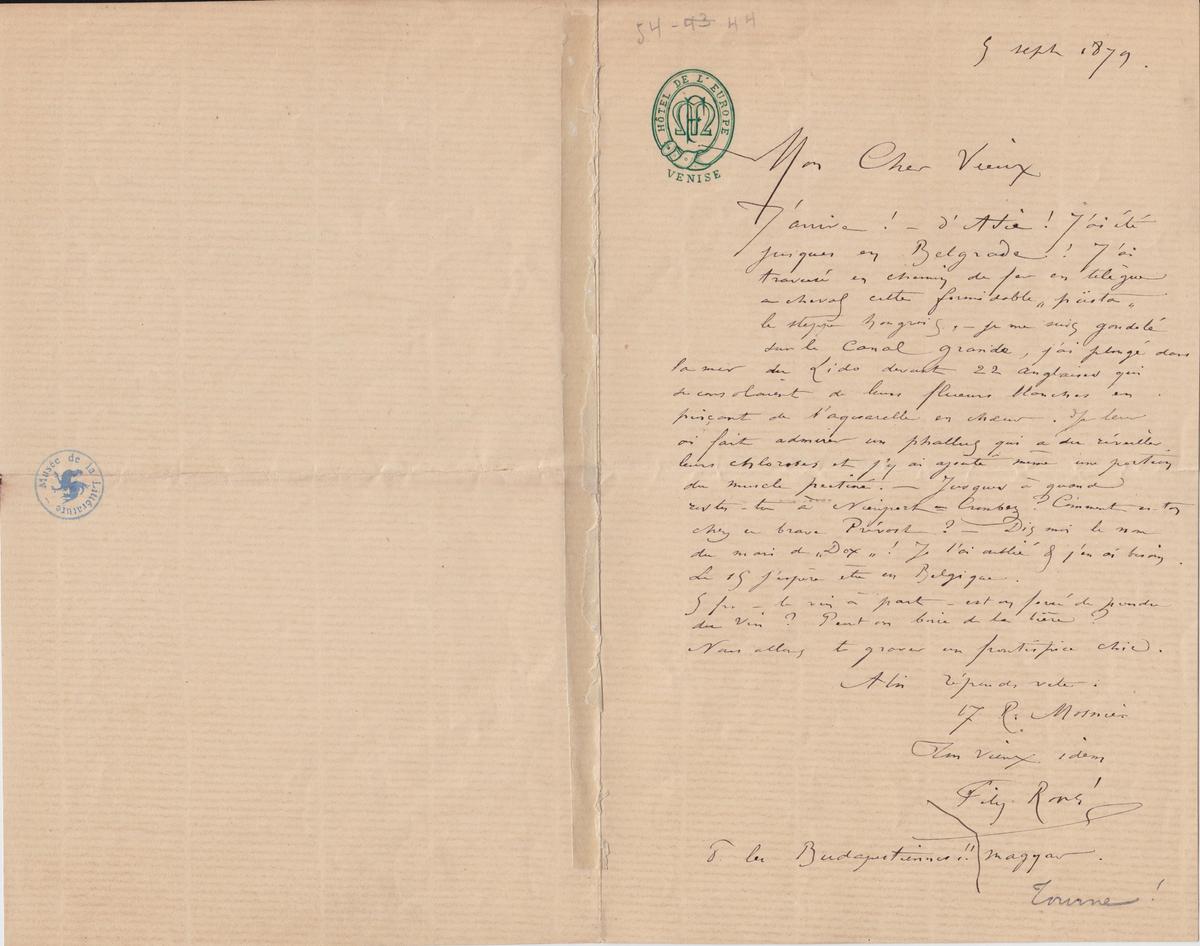 54-43 44
5 sept 1879.
HÔTEL DE L'EUROPE
VENISE
Mon Cher Vieux
J'arrive ! – d'Asie ! J'ai été
jusques en Belgrade ! J'ai
traversé en chemin de fer en télègue
a cheval cette formidable „ püsta „
le steppe hongrois, – je me suis gondolé
sur le Canal grande, j'ai plongé dans
la mer du Lido devant 22 anglaises qui
se consolaient de leurs flueurs blanches en
pinçant de l'aquarelle en chœur. Je leur
ai fait admirer un phallus qui a du réveiller
leurs chloroses et j'y ai ajouté même une portion
du muscle pectiné. – Jusques à quand
restes-tu à Nieuport = Crombez ? Comment es-tu
chez ce brave Prévost ? – Dis moi le nom
du mari de „Dox „ ! Je l'ai oublié & j'en ai besoin.
Le 15 j'espère être en Belgique.
5 frs – le vin à part – est on forcé de prendre
du Vin ? Peut on boire de la bière ?
Nous allons te graver un frontispice chic.
réponds vite :
17 R. Mosnier
Ton vieux idem
Fély. Rops
les Budapestiennes !! magyar.
Tourne !
Musée de la Littérature